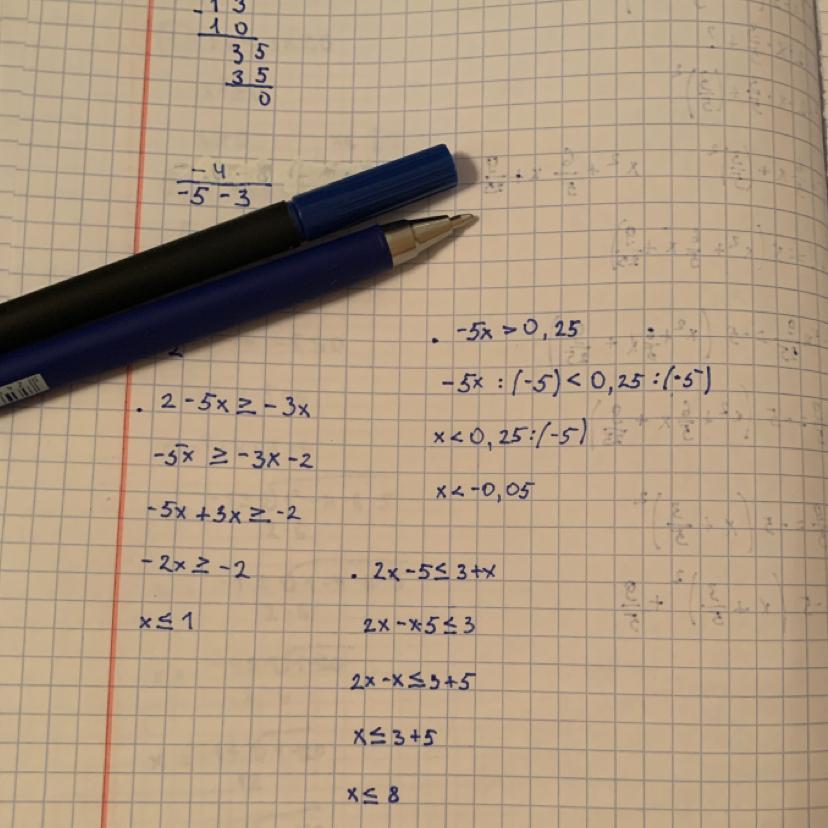 - 1 3
1 0
3 5
3 5
0
-4
-5 - 3
2
. 2 - 5x ≥ - 3x
-5x ≥ -3x - 2
-5x + 3x ≥ -2
-2x ≥ -2
x ≤ 1
. -5x > 0,25
-5x : (-5) < 0,25 : (-5)
x < 0,25 : (-5)
x < -0,05
. 2x - 5 ≤ 3 + x
2x - x - 5 ≤ 3
2x - x ≤ 3 + 5
x ≤ 3 + 5
x ≤ 8